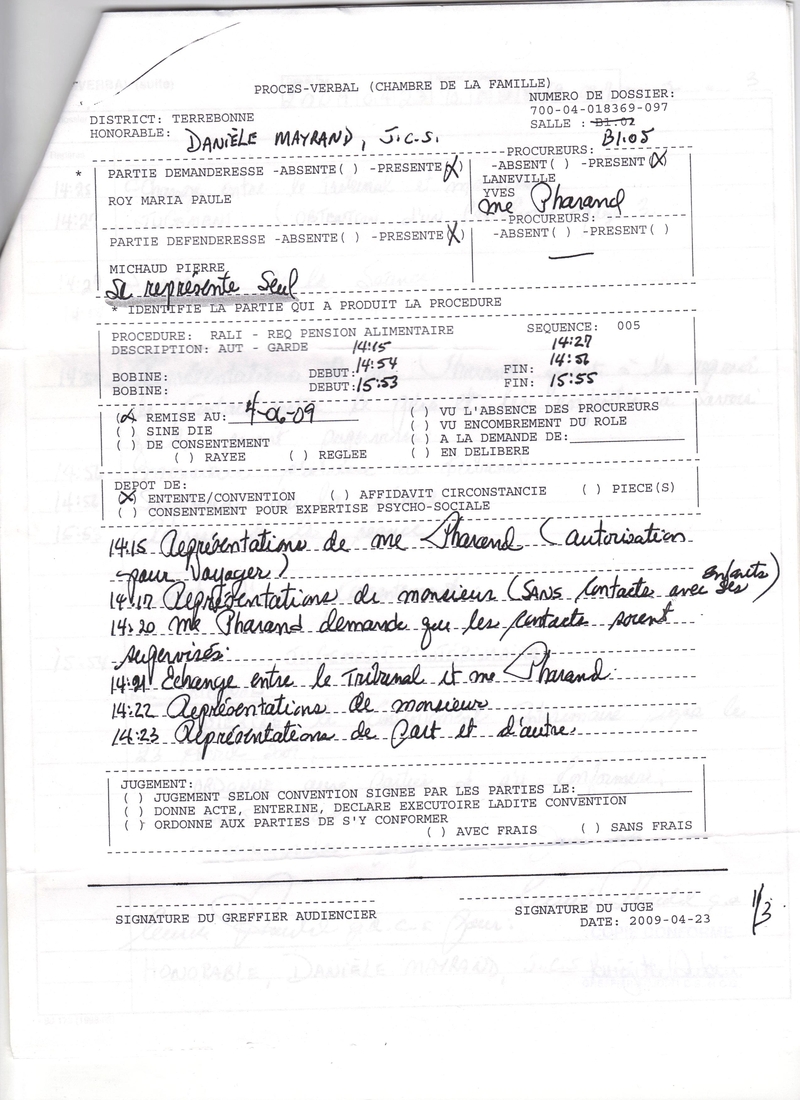 PROCES-VERBAL (CHAMBRE DE LA FAMILLE)
NUMERO DE DOSSIER:
700-04-018369-097
DISTRICT: TERREBONNE
SALLE : B1.02
HONORABLE: DANIÈLE MAYRAND, J.C.S.
B1.05
PROCUREURS:
* PARTIE DEMANDERESSE -ABSENTE( ) -PRESENTE(X) -ABSENT( ) -PRESENT(X)
LANEVILLE
ROY MARIA PAULE YVES
me Pharand
PROCUREURS:
PARTIE DEFENDERESSE -ABSENTE( ) -PRESENTE(X) -ABSENT( ) -PRESENT( )
MICHAUD PIERRE
Se représente Seul
* IDENTIFIE LA PARTIE QUI A PRODUIT LA PROCEDURE
PROCEDURE: RALI - REQ PENSION ALIMENTAIRE SEQUENCE: 005
DESCRIPTION: AUT - GARDE 14:15 14:27
BOBINE: DEBUT: 14:54 FIN: 14:56
BOBINE: DEBUT: 15:53 FIN: 15:55
(X) REMISE AU: 4-06-09 ( ) VU L'ABSENCE DES PROCUREURS
( ) SINE DIE ( ) VU ENCOMBREMENT DU ROLE
( ) DE CONSENTEMENT ( ) A LA DEMANDE DE:
( ) RAYEE ( ) REGLEE ( ) EN DELIBERE
DEPOT DE:
(X) ENTENTE/CONVENTION ( ) AFFIDAVIT CIRCONSTANCIE ( ) PIECE(S)
( ) CONSENTEMENT POUR EXPERTISE PSYCHO-SOCIALE
14:15 Représentations de me Pharand (autorisation
pour voyager)
14:17 Représentations de monsieur (SANS contacts avec ses enfants)
14:20 me Pharand demande que les contacts soient
supervisés.
14:21 Echange entre le Tribunal et me Pharand.
14:22 Représentations de monsieur
14:23 Représentations de part et d'autre.
JUGEMENT:
( ) JUGEMENT SELON CONVENTION SIGNEE PAR LES PARTIES LE:
( ) DONNE ACTE, ENTERINE, DECLARE EXECUTOIRE LADITE CONVENTION
( ) ORDONNE AUX PARTIES DE S'Y CONFORMER
( ) AVEC FRAIS ( ) SANS FRAIS
SIGNATURE DU GREFFIER AUDIENCIER SIGNATURE DU JUGE
DATE: 2009-04-23
1/3